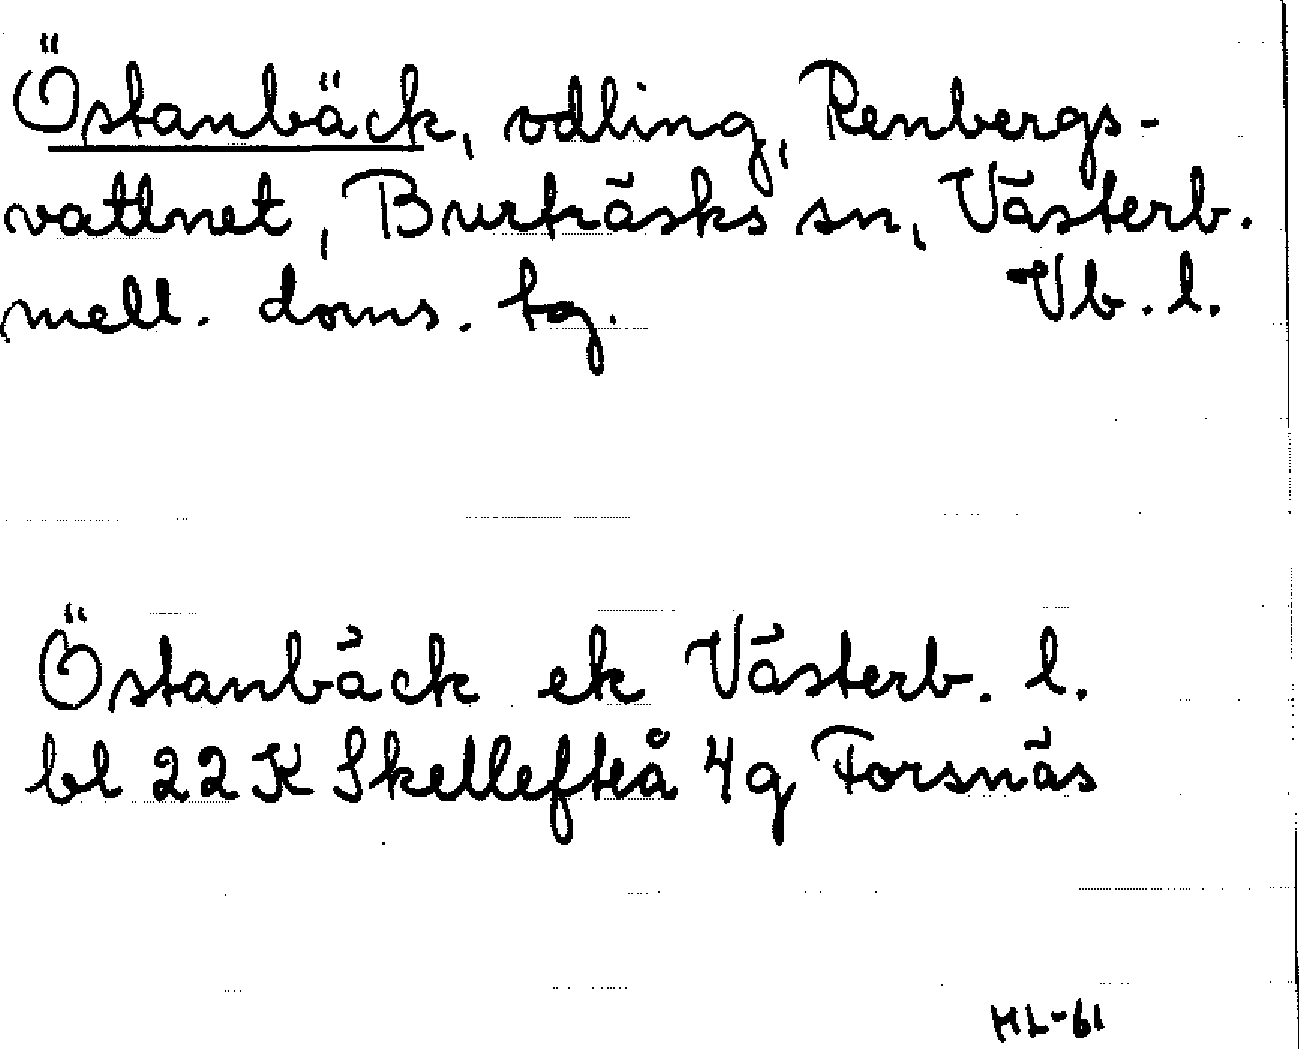 Östanbäck, odling, Renbergs-
vattnet, Burträsks sn, Västerb.
mell. doms. tg. Vb. l.
Östanbäck ek Västerb. l.
bl 22 K Skellefteå 4g Forsnäs
HL-61